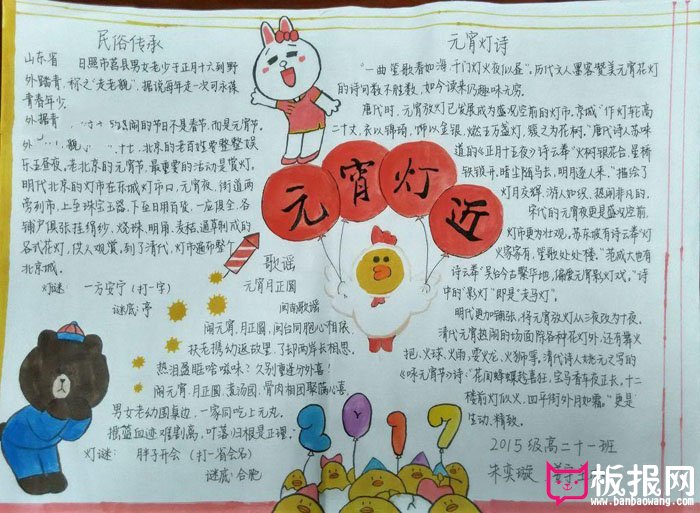 民俗传承
山东省 日照市莒县男女老少于正月十六到野
外踏青，称之"走老貌"。据说每年走一次可永葆
青春年少。
外据看
的热闹的节日不是春节，而是元宵节。
北京的老百姓要整整娱
乐五昼夜。老北京的元宵节，最重要的活动是赏灯。
明代北京的灯市在东城灯市口，元宵夜，街道两
旁列市，上至珠宝玉器，下至日用百货，一应俱全，各
铺户俱张挂绢纱、烧珠、明角、麦秸、通草制成的
各式花灯，供人观赏，到了清代，灯市遍布整个
北京城。
灯谜： 一方安宁（打一字）
谜底：亭
元宵灯近
歌谣
元宵月正圆
闽南歌谣
闹元宵，月正圆，闽台同胞心相依。
扶老携幼返故里，了却两岸长相思。
热泪盈眶啥滋味？久别重逢分外喜！
闹元宵，月正圆，煮汤圆，骨肉相团聚满心喜，
男女老幼围桌边，一家同吃上元丸。
摇篮血迹难割离，叶落归根是正理。
灯谜： 胖子开会（打一省会名）
谜底：合肥
2017
元宵灯诗
"一曲笙歌春如海，千门灯火夜似昼"。历代文人墨客赞美元宵花灯
的诗句数不胜数，如今读来仍趣味无穷。
唐代时，元宵放灯已发展成为盛况空前的灯市，京城"作灯轮高
二十丈，衣以锦绮，饰以金银，燃五万盏灯，簇之为花树。"唐代诗人苏味
道的《正月十五夜》诗云"火树银花合，星桥
铁锁开，暗尘随马去，明月逐人来。"描绘了
灯月交辉，游人如织，热闹非凡的。
宋代的元宵夜更是盛况空前，
灯市更为壮观。苏东坡有诗云"灯
火家家有，笙歌处处楼。"范成大也有
诗云"吴台今古繁华地，偏爱元宵影灯戏。"诗
中的"影灯"即是"走马灯"。
明代更加铺张，将元宵放灯从三夜改为十夜。
清代元宵热闹的场面除各种花灯外，还有舞火
把、火球、火雨，耍火龙、火狮等，清代诗人姚元之写的
《咏元宵节》诗："花间蜂蝶趁喜狂，宝马香车夜正长，十二
楼前灯似火，四平街外月如霜。"更是
生动、精致。
2015级高二十一班
朱奕璇
板报网
www.banbaowang.com